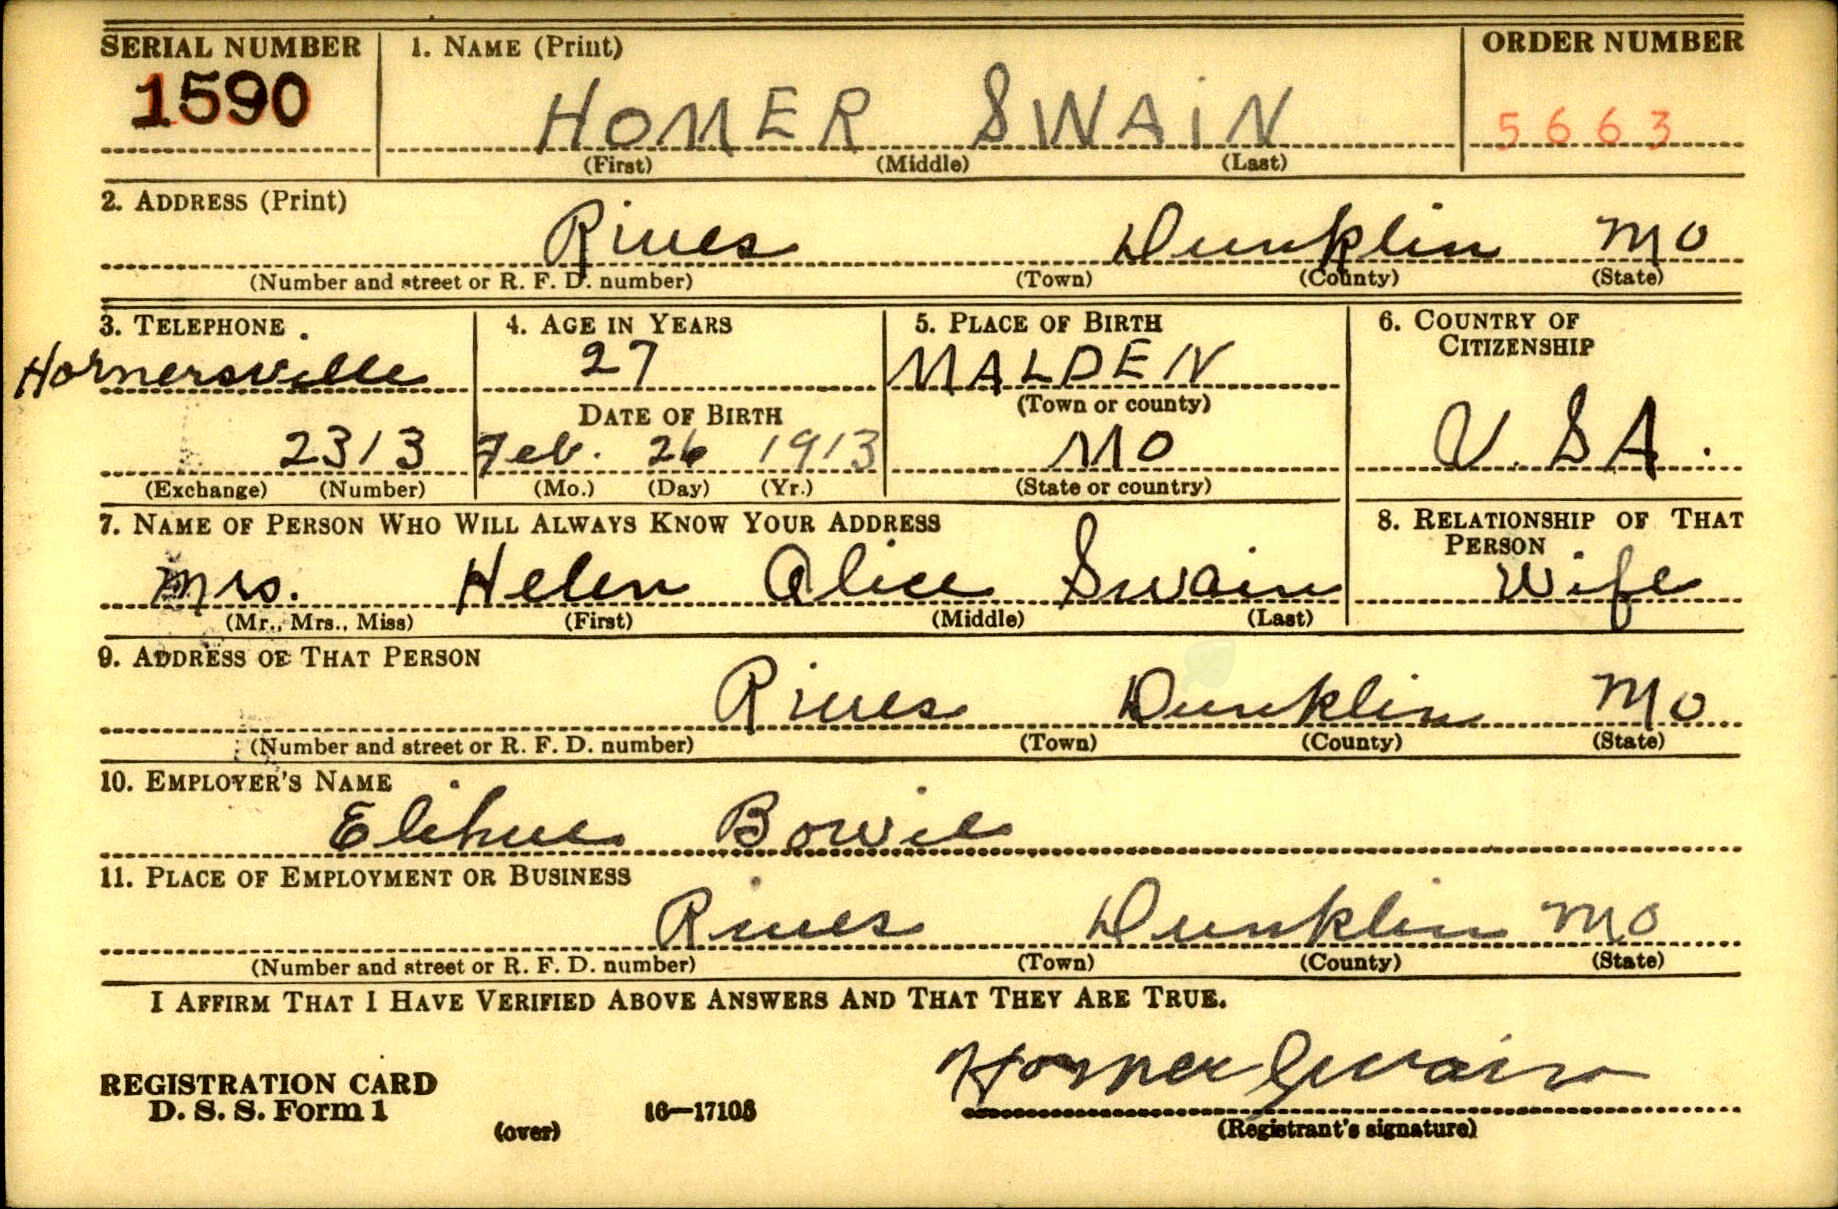 SERIAL NUMBER 1. NAME (Print) ORDER NUMBER
1590 HOMER SWAIN 5663
(First) (Middle) (Last)
2. ADDRESS (Print)
Rives Dunklin Mo
(Number and street or R. F. D. number) (Town) (County) (State)
3. TELEPHONE 4. AGE IN YEARS 5. PLACE OF BIRTH 6. COUNTRY OF
CITIZENSHIP
Hornersville 27 MALDEN
(Town or county)
DATE OF BIRTH
2313 Feb. 26 1913 MO U.SA.
(Exchange) (Number) (Mo.) (Day) (Yr.) (State or country)
7. NAME OF PERSON WHO WILL ALWAYS KNOW YOUR ADDRESS 8. RELATIONSHIP OF THAT
PERSON
Mrs. Helen Alice Swain Wife
(Mr., Mrs., Miss) (First) (Middle) (Last)
9. ADDRESS OF THAT PERSON
Rives Dunklin Mo
(Number and street or R. F. D. number) (Town) (County) (State)
10. EMPLOYER'S NAME
Elihue Bowie
11. PLACE OF EMPLOYMENT OR BUSINESS
Rives Dunklin Mo
(Number and street or R. F. D. number) (Town) (County) (State)
I AFFIRM THAT I HAVE VERIFIED ABOVE ANSWERS AND THAT THEY ARE TRUE.
Homer Swain
REGISTRATION CARD
D. S. S. Form 1 16—17105
(over) (Registrant's signature)